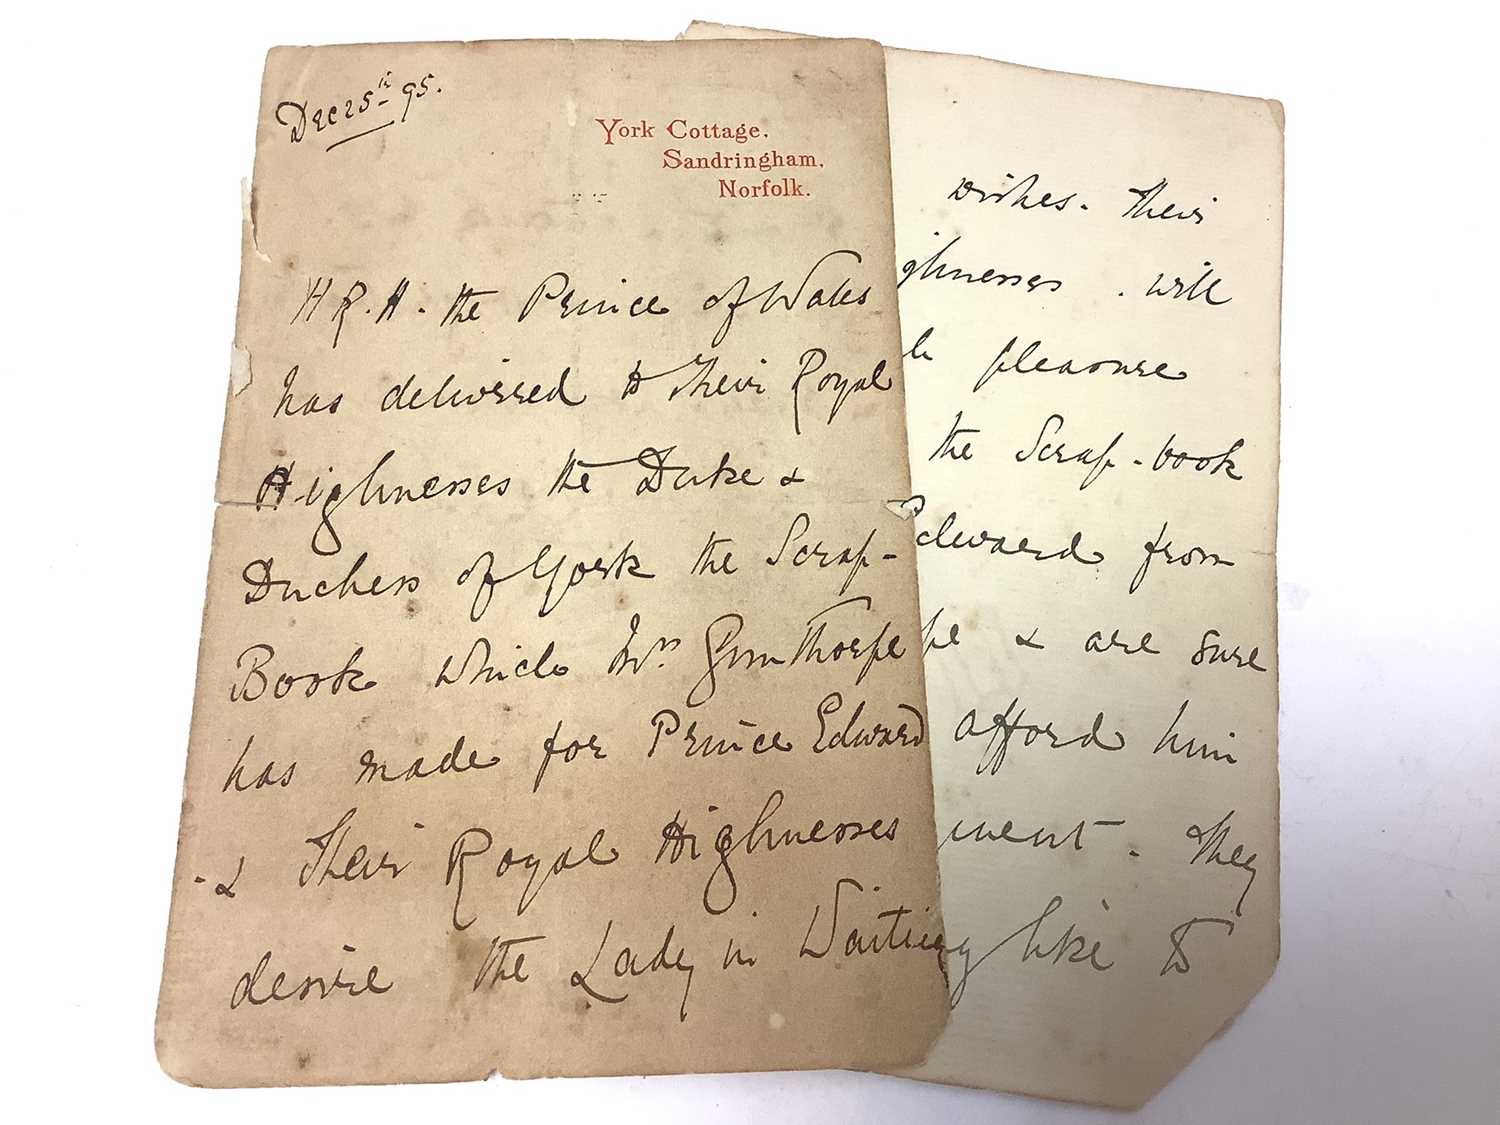 Dec 25th 95.
York Cottage,
Sandringham,
Norfolk.
H R. H. the Prince of Wales
has delivered to Their Royal
Highnesses the Duke &
Duchess of York the Scrap-
Book which Mrs GrimThorpe
has made for Prince Edward
& Their Royal Highnesses
desire the Lady in Waiting
wishes. Their
ghnesses. will
pleasure
the Scrap-book
Edward from
pe & are sure
afford him
ment. They
like to